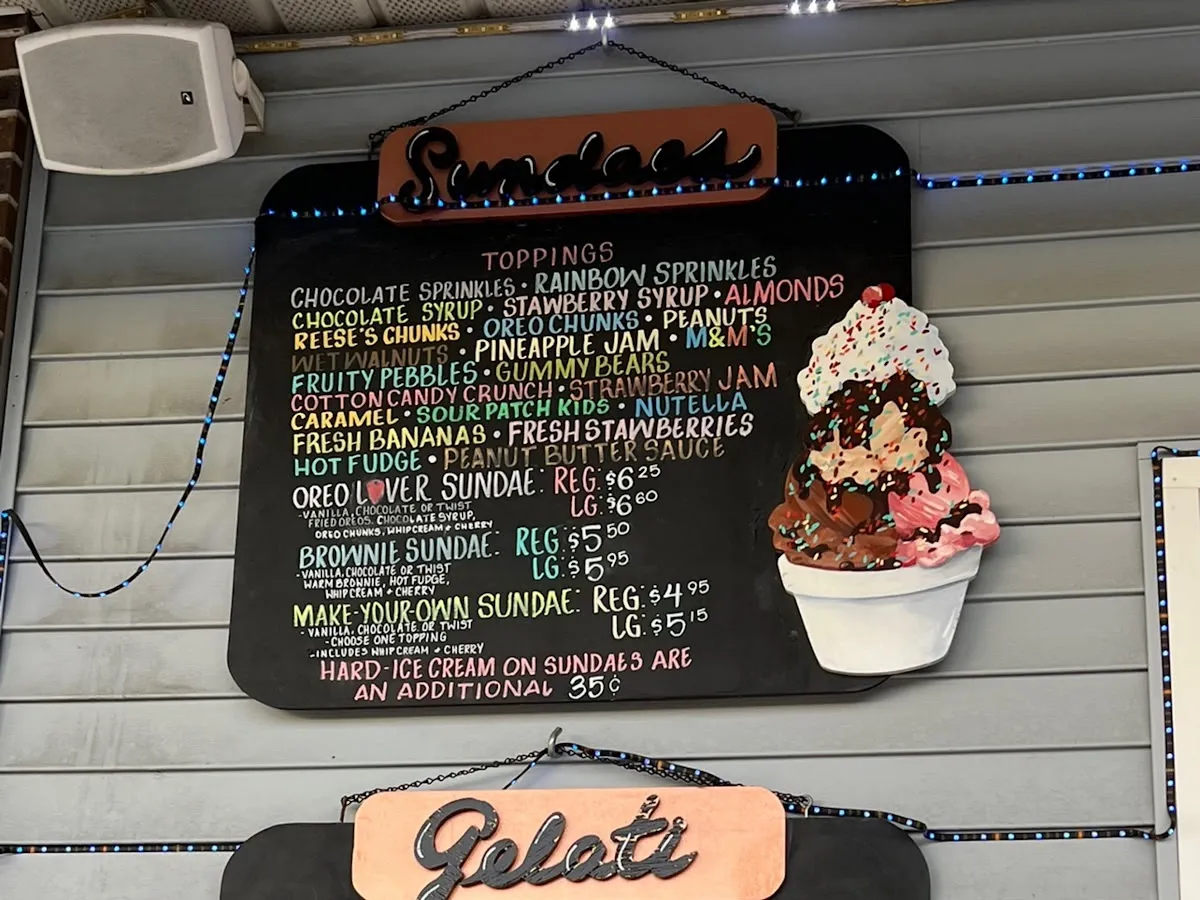 Sundaes
TOPPINGS
CHOCOLATE SPRINKLES • RAINBOW SPRINKLES
CHOCOLATE SYRUP • STAWBERRY SYRUP • ALMONDS
REESE'S CHUNKS • OREO CHUNKS • PEANUTS
WET WALNUTS • PINEAPPLE JAM • M&M'S
FRUITY PEBBLES • GUMMY BEARS
COTTON CANDY CRUNCH • STRAWBERRY JAM
CARAMEL • SOUR PATCH KIDS • NUTELLA
FRESH BANANAS • FRESH STAWBERRIES
HOT FUDGE • PEANUT BUTTER SAUCE
OREO LOVER SUNDAE: REG: $6 25
LG: $6 60
-VANILLA, CHOCOLATE OR TWIST
FRIED OREOS, CHOCOLATE SYRUP,
OREO CHUNKS, WHIPCREAM + CHERRY
BROWNIE SUNDAE: REG: $5 50
LG: $5 95
-VANILLA, CHOCOLATE OR TWIST
WARM BROWNIE, HOT FUDGE,
WHIPCREAM + CHERRY
MAKE-YOUR-OWN SUNDAE: REG: $4 95
LG: $5 15
-VANILLA, CHOCOLATE, OR TWIST
-CHOOSE ONE TOPPING
-INCLUDES WHIPCREAM + CHERRY
HARD-ICE CREAM ON SUNDAES ARE
AN ADDITIONAL 35¢
Gelati